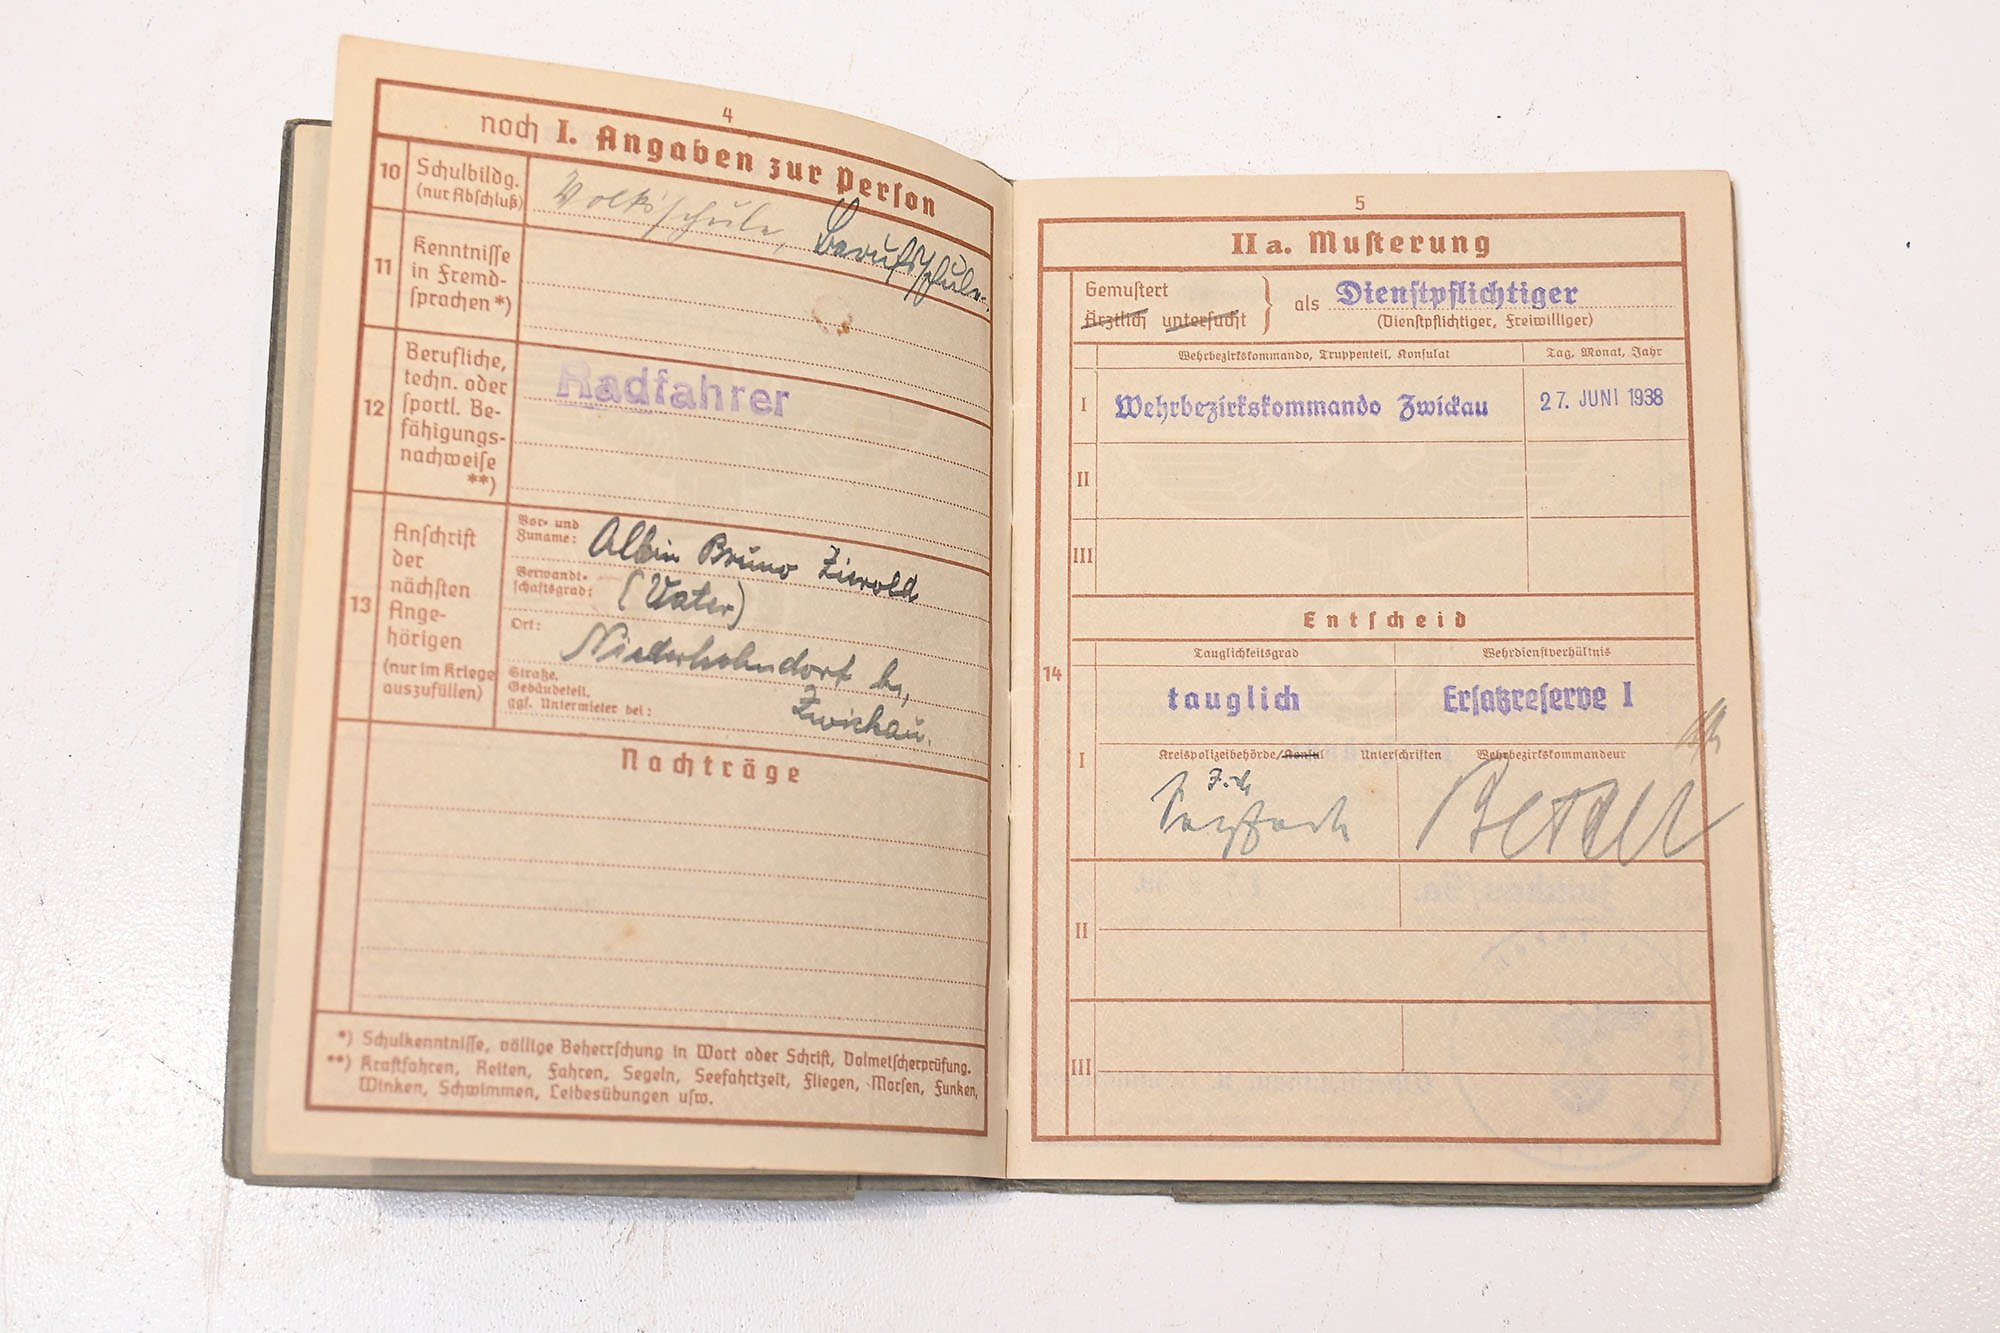 4
noch I. Angaben zur Person
10
Schulbildg.
(nur Abschluß)
Volksschule, Berufsschule.
11
Kenntnisse
in Fremd-
sprachen *)
12
Berufliche,
techn. oder
sportl. Be-
fähigungs-
nachweise
**)
Radfahrer
13
Anschrift
der
nächsten
Ange-
hörigen
(nur im Kriege
auszufüllen)
Vor- und
Zuname:
Albin Bruno Zierold
Verwandt-
schaftsgrad:
(Vater)
Ort:
Niederhohndorf b,
Straße,
Gebäudeteil,
ggf. Untermieter bei:
Zwickau.
Nachträge
*) Schulkenntnisse, völlige Beherrschung in Wort oder Schrift, Dolmetscherprüfung.
**) Kraftfahren, Reiten, Fahren, Segeln, Seefahrtzeit, Fliegen, Morsen, Funken,
Winken, Schwimmen, Leibesübungen usw.
5
IIa. Musterung
Gemustert
Ärztlich untersucht
als Dienstpflichtiger
(Dienstpflichtiger, Freiwilliger)
Wehrbezirkskommando, Truppenteil, Konsulat
Tag, Monat, Jahr
I
Wehrbezirkskommando Zwickau
27. JUNI 1938
II
III
Entscheid
14
Tauglichkeitsgrad
Wehrdienstverhältnis
I
tauglich
Ersatzreserve I
Kreispolizeibehörde/Konsul
Unterschriften
Wehrbezirkskommandeur
II
III